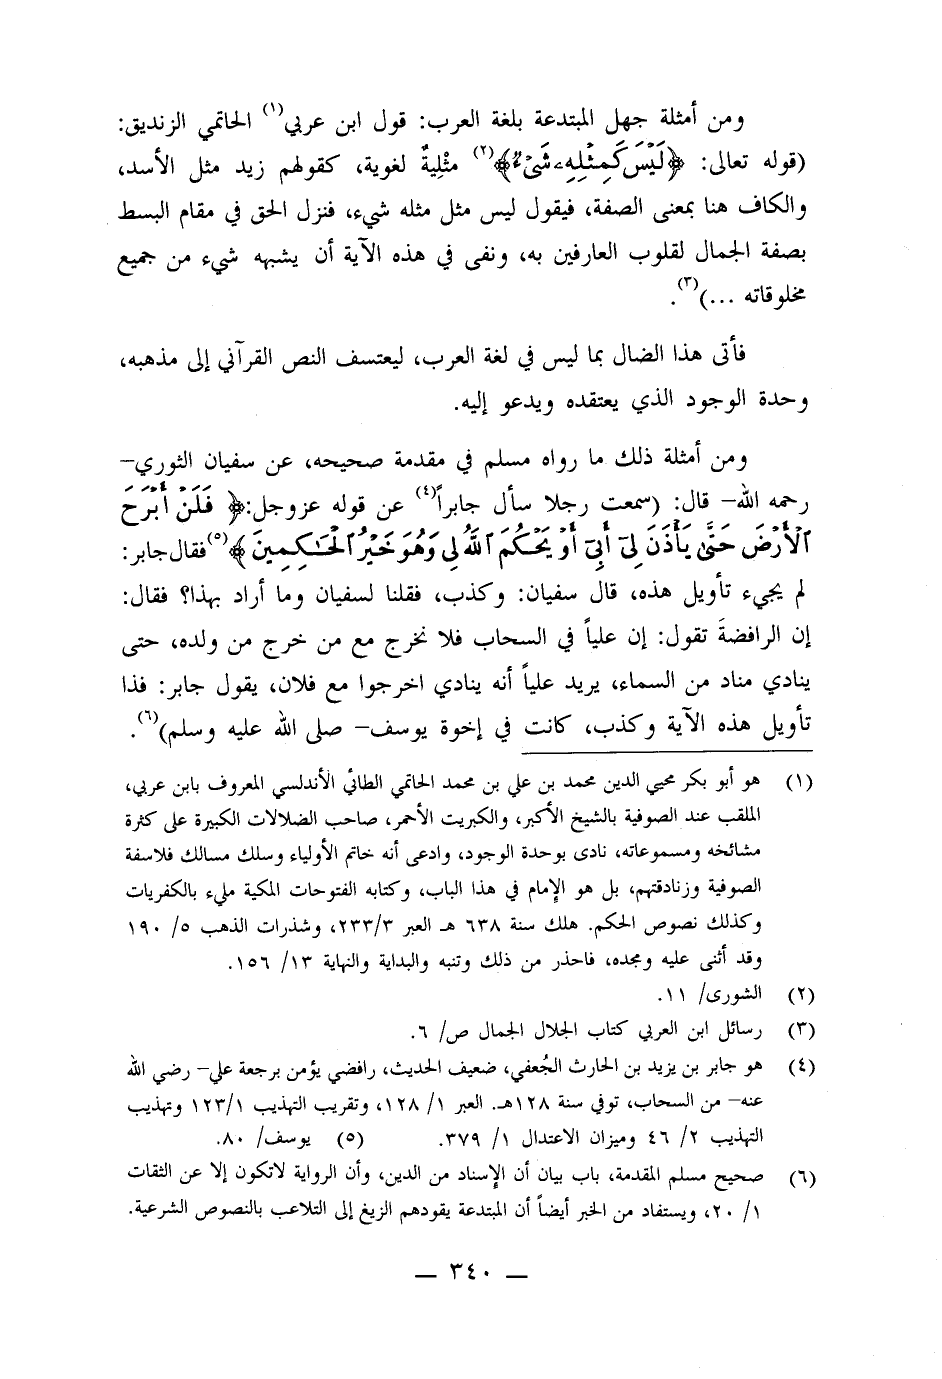 ومن أمثلة جهل المبتدعة بلغة العرب: قول ابن عربي(١) الحاتمي الزنديق:
(قوله تعالى: ﴿لَيْسَ كَمِثْلِهِۦ شَىْءٌ﴾(٢) مثْلِيةٌ لغوية، كقولهم زيد مثل الأسد،
والكاف هنا بمعنى الصفة، فيقول ليس مثل مثله شيء، فنزل الحق في مقام البسط
بصفة الجمال لقلوب العارفين به، ونفى في هذه الآية أن يشبهه شيء من جميع
مخلوقاته ...)(٣).
فأتى هذا الضال بما ليس في لغة العرب، ليعتسف النص القرآني إلى مذهبه،
وحدة الوجود الذي يعتقده ويدعو إليه.
ومن أمثلة ذلك ما رواه مسلم في مقدمة صحيحه، عن سفيان الثوري–
رحمه الله– قال: (سمعت رجلا سأل جابراً(٤) عن قوله عزوجل:﴿ فَلَنْ أَبْرَحَ
الْأَرْضَ حَتَّىٰ يَأْذَنَ لِىٓ أَبِىٓ أَوْ يَحْكُمَ اللَّهُ لِى وَهُوَ خَيْرُ الْحَٰكِمِينَ ﴾(٥) فقال جابر:
لم يجيء تأويل هذه، قال سفيان: وكذب، فقلنا لسفيان وما أراد بهذا؟ فقال:
إن الرافضةَ تقول: إن علياً في السحاب فلا نخرج مع من خرج من ولده، حتى
ينادي مناد من السماء، يريد علياً أنه ينادي اخرجوا مع فلان، يقول جابر: فذا
تأويل هذه الآية وكذب، كانت في إخوة يوسف– صلى الله عليه وسلم)(٦).
(١) هو أبو بكر محيي الدين محمد بن علي بن محمد الحاتمي الطائي الأندلسي المعروف بابن عربي،
الملقب عند الصوفية بالشيخ الأكبر، والكبريت الأحمر، صاحب الضلالات الكبيرة على كثرة
مشائخه ومسموعاته، نادى بوحدة الوجود، وادعى أنه خاتم الأولياء وسلك مسالك فلاسفة
الصوفية وزنادقتهم، بل هو الإمام في هذا الباب، وكتابه الفتوحات المكية مليء بالكفريات
وكذلك نصوص الحكم. هلك سنة ٦٣٨ هـ العبر ٢٣٣/٣، وشذرات الذهب ٥/ ١٩٠
وقد أثنى عليه ومجده، فاحذر من ذلك وتنبه والبداية والنهاية ١٣/ ١٥٦.
(٢) الشورى/ ١١.
(٣) رسائل ابن العربي كتاب الجلال الجمال ص/ ٦.
(٤) هو جابر بن يزيد بن الحارث الجُعفي، ضعيف الحديث، رافضي يؤمن برجعة علي– رضي الله
عنه– من السحاب، توفي سنة ١٢٨هـ. العبر ١/ ١٢٨، وتقريب التهذيب ١٢٣/١ وتهذيب
التهذيب ٢/ ٤٦ وميزان الاعتدال ١/ ٣٧٩. (٥) يوسف/ ٨٠.
(٦) صحيح مسلم المقدمة، باب بيان أن الإسناد من الدين، وأن الرواية لاتكون إلا عن الثقات
١/ ٢٠، ويستفاد من الخبر أيضاً أن المبتدعة يقودهم الزيغ إلى التلاعب بالنصوص الشرعية.
— ٣٤٠ —